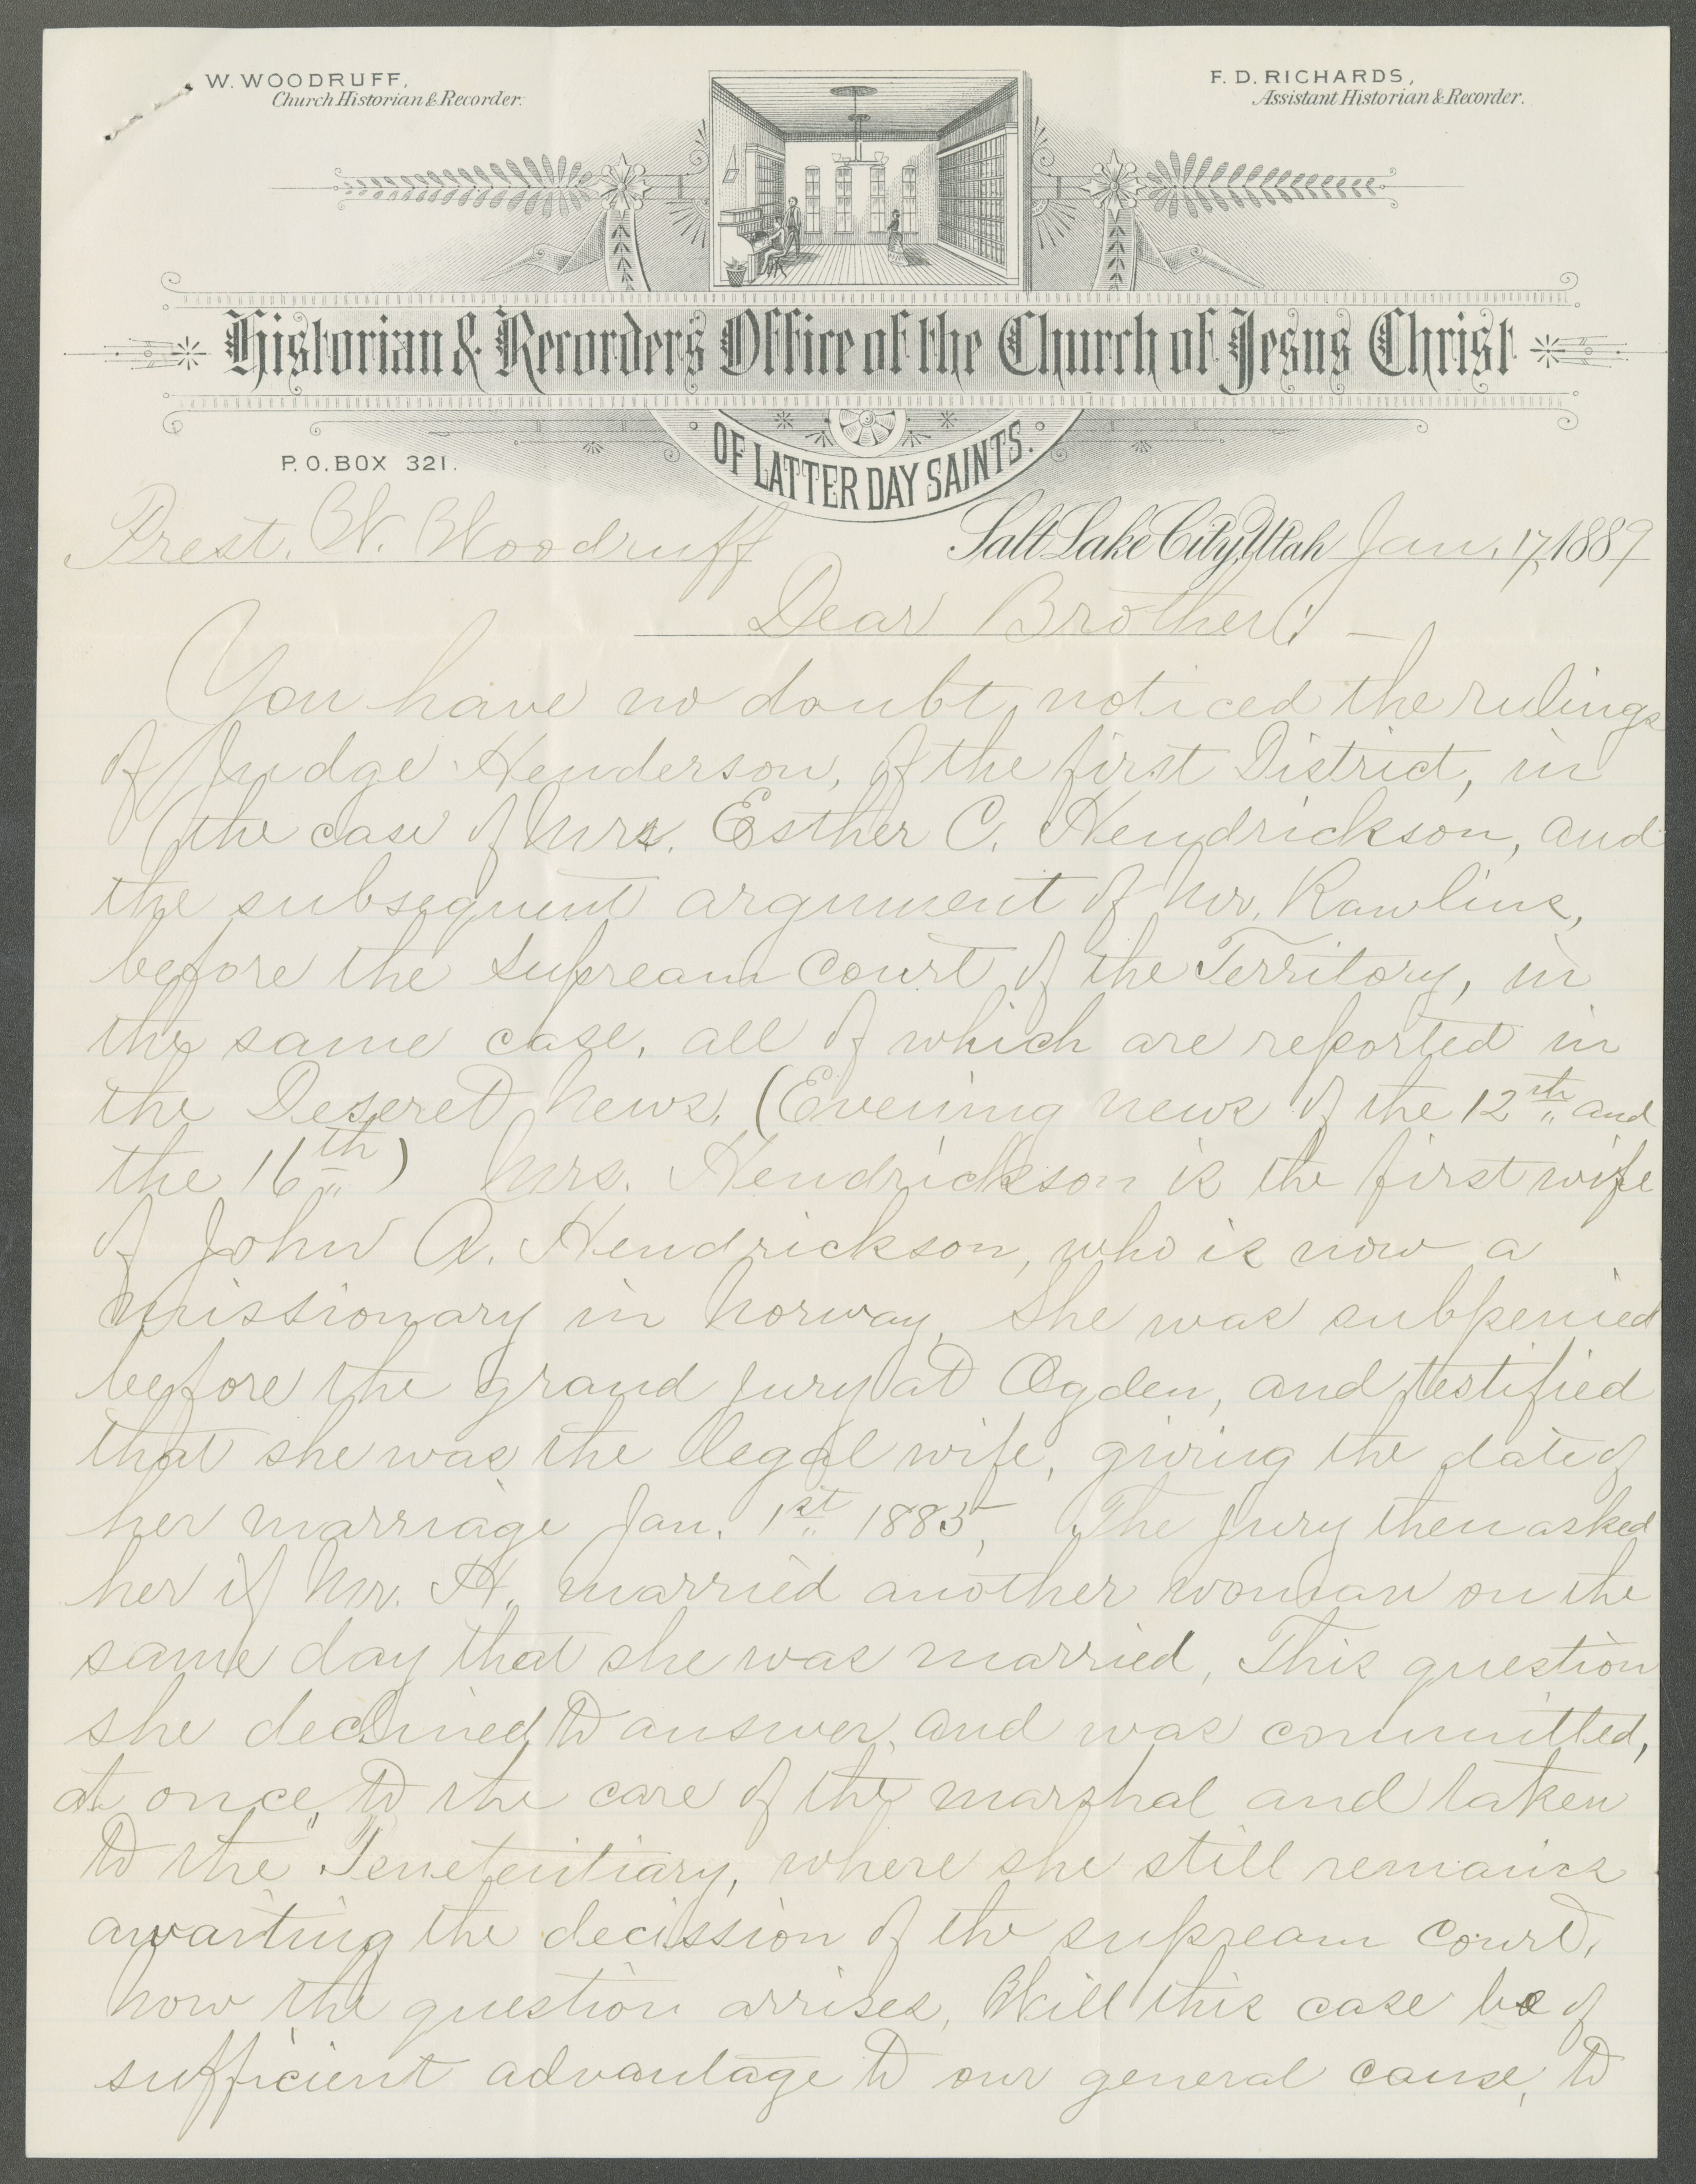 W. WOODRUFF,
Church Historian & Recorder.
F. D. RICHARDS,
Assistant Historian & Recorder.
Historian & Recorders Office of the Church of Jesus Christ
OF LATTER DAY SAINTS.
P. O. BOX 321.
Prest. W. Woodruff
Salt Lake City, Utah Jan. 17, 1889
Dear Brother: —
You have no doubt noticed the rulings
of Judge Henderson, of the first District, in
the case of Mrs. Esther C. Hendrickson, and
the subsequent argument of Mr. Rawlins,
before the Supream Court of the Territory, in
the same case, all of which are reported in
the Deseret News, (Evening News of the 12th and
the 16th) Mrs. Hendrickson is the first wife
of John A. Hendrickson, who is now a
missionary in Norway, She was subpenied
before the grand jury at Ogden, and testified
that she was the legal wife, giving the date of
her marriage Jan. 1st 1885, The Jury then asked
her if Mr. H. married another woman on the
same day that she was married, This question
she declined to answer, and was committed,
at once, to the care of the marshal and taken
to the Penetentiary, where she still remains
awaiting the decission of the supream court,
Now the question arrises, Will this case be of
sufficient advantage to our general cause, to